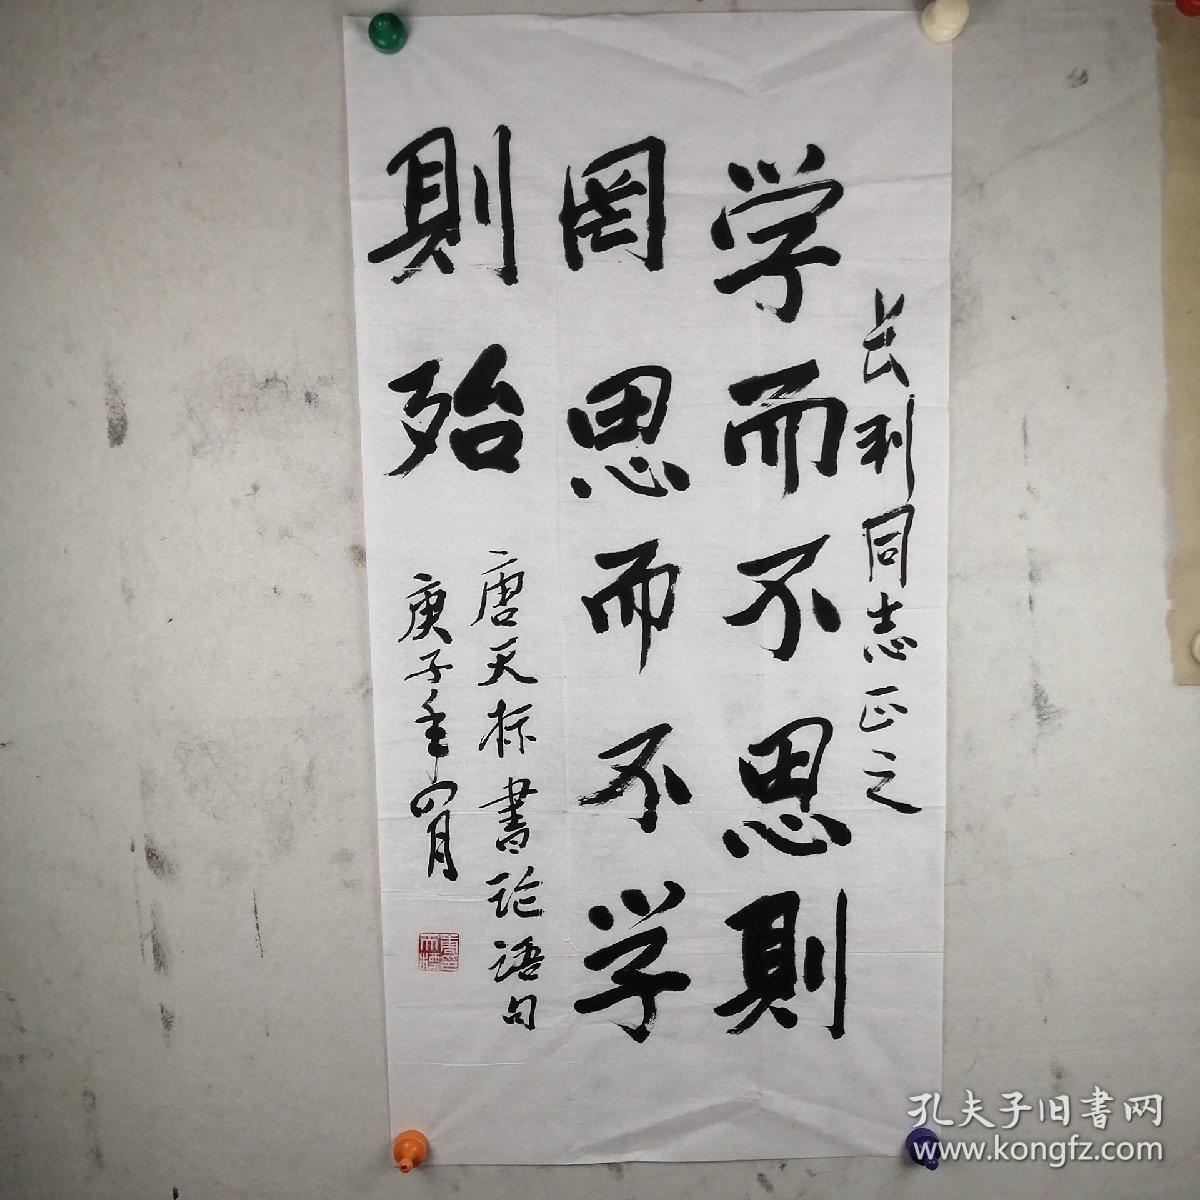 长利同志正之
学而不思则
罔思而不学
则殆
唐天标书论语句
庚子年四月
孔夫子旧书网
www.kongfz.com